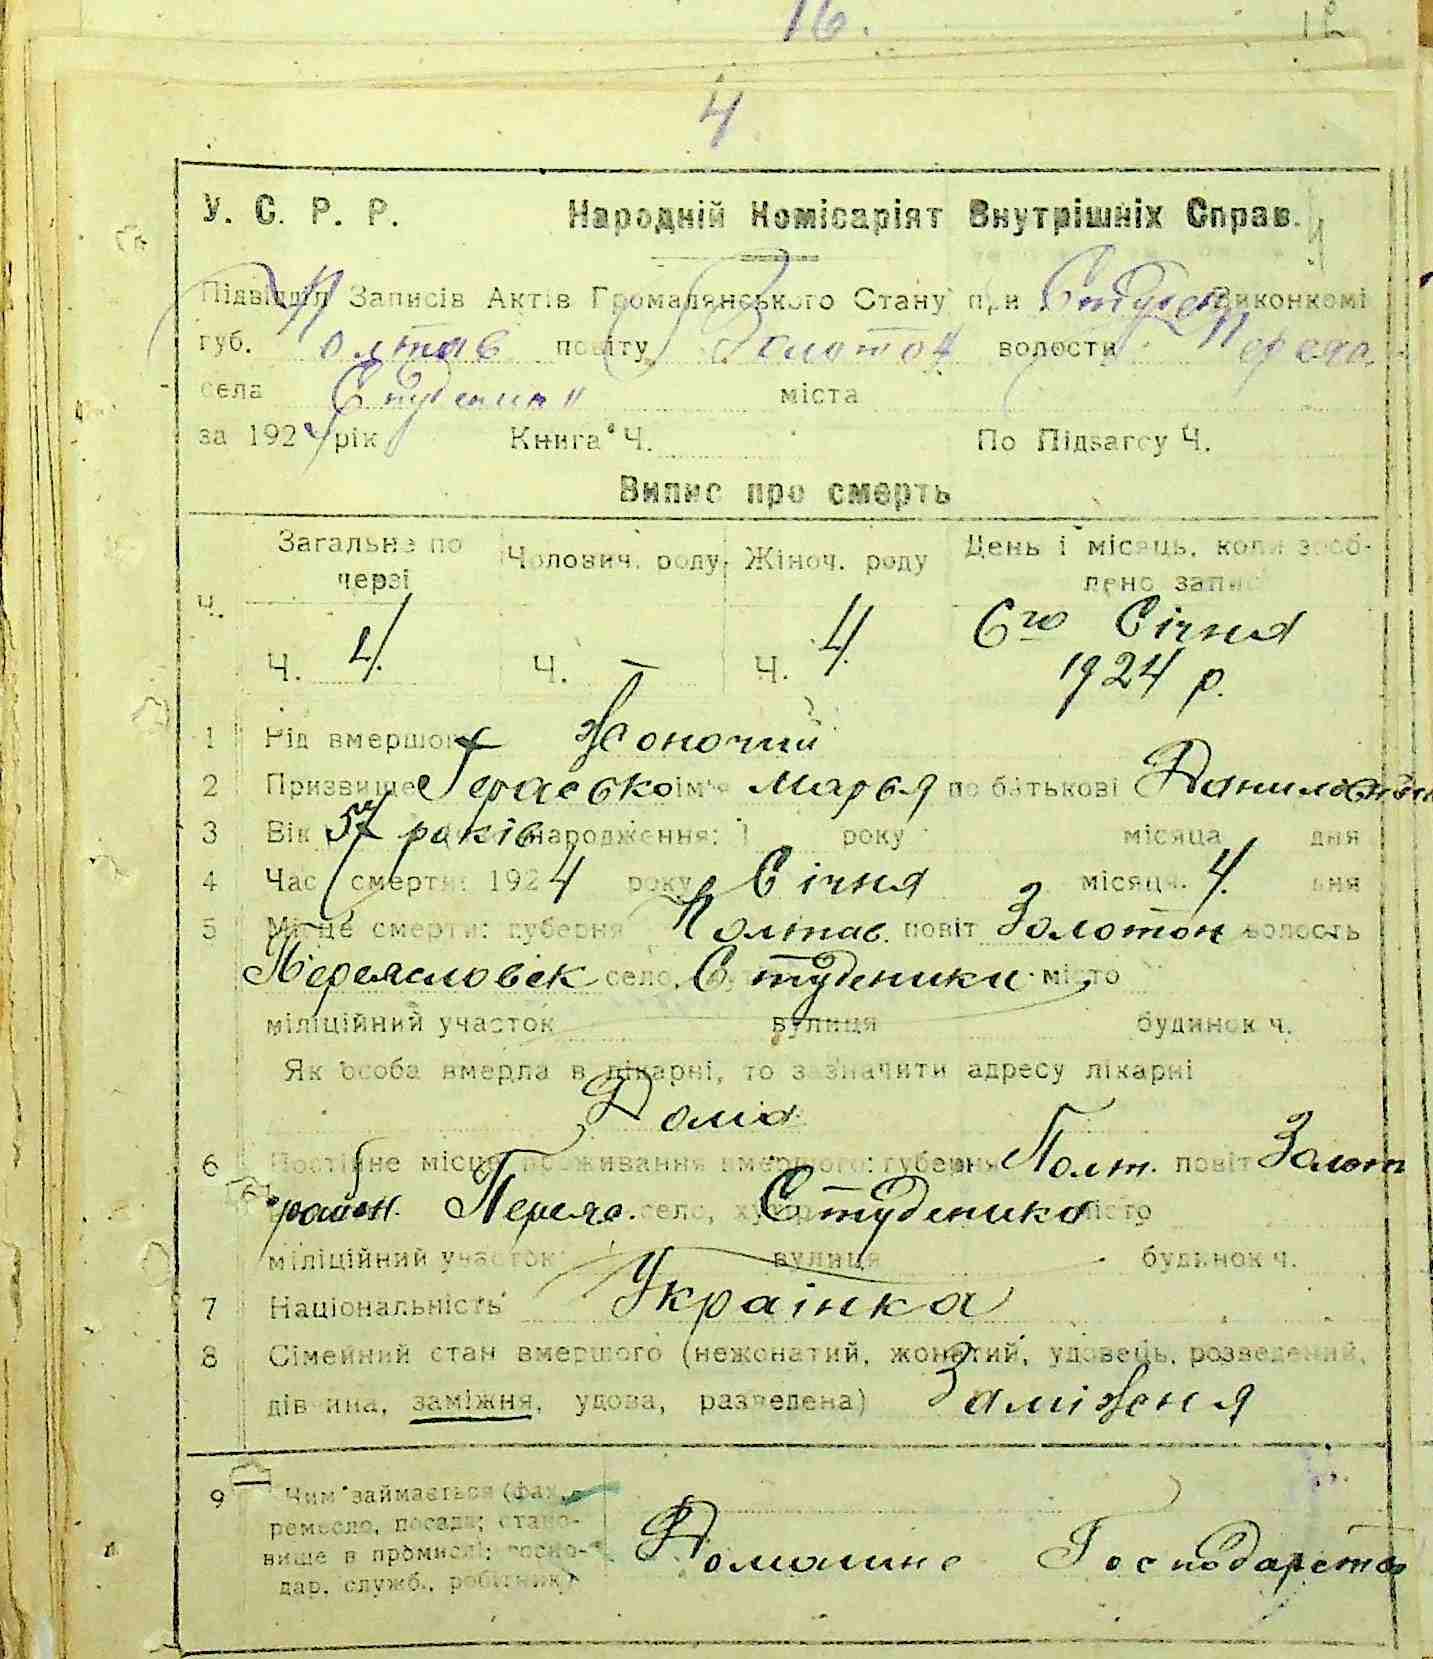 16.
4
У. С. Р. Р. Народній Комісаріят Внутрішніх Справ.
Підвідділ Записів Актів Громадянського Стану при Студен Виконкомі
губ. Полтав повіту Золотон волости Переяс.
села Студеники міста
за 1924 рік Книга Ч. По Підзагсу Ч.
Випис про смерть
Загальне по Чолович. роду Жіноч. роду День і місяць, коли зроб-
черзі лено запис
Ч. 6го Січня
Ч. 4. Ч. — Ч. 4. 1924 р.
1 Рід вмершого Жоночий
2 Призвище Гераська ім'я Марья по батькові Даниловна
3 Вік 57 років народження: 1 року місяця дня
4 Час смерти: 1924 року Січня місяця 4. дня
5 Місце смерти: губерня Полтав. повіт Золотон волость
Переяславск село, Студеники місто
міліційний участок вулиця будинок ч.
Як особа вмерла в лікарні, то зазначити адресу лікарні
Дома
6 Постійне місце проживання вмершого: губерня Полт. повіт Золот
район. Переяс. село, Студеники місто
міліційний участок вулиця будинок ч.
7 Національність Українка
8 Сімейний стан вмершого (нежонатий, жонатий, удовець, розведений,
дівчина, заміжня, удова, разведена) Заміженя
9 Чим займається (фах,
ремесло, посада; стано-
вище в промислі: госпо- Домашне Господарство
дар, служб., робітник)